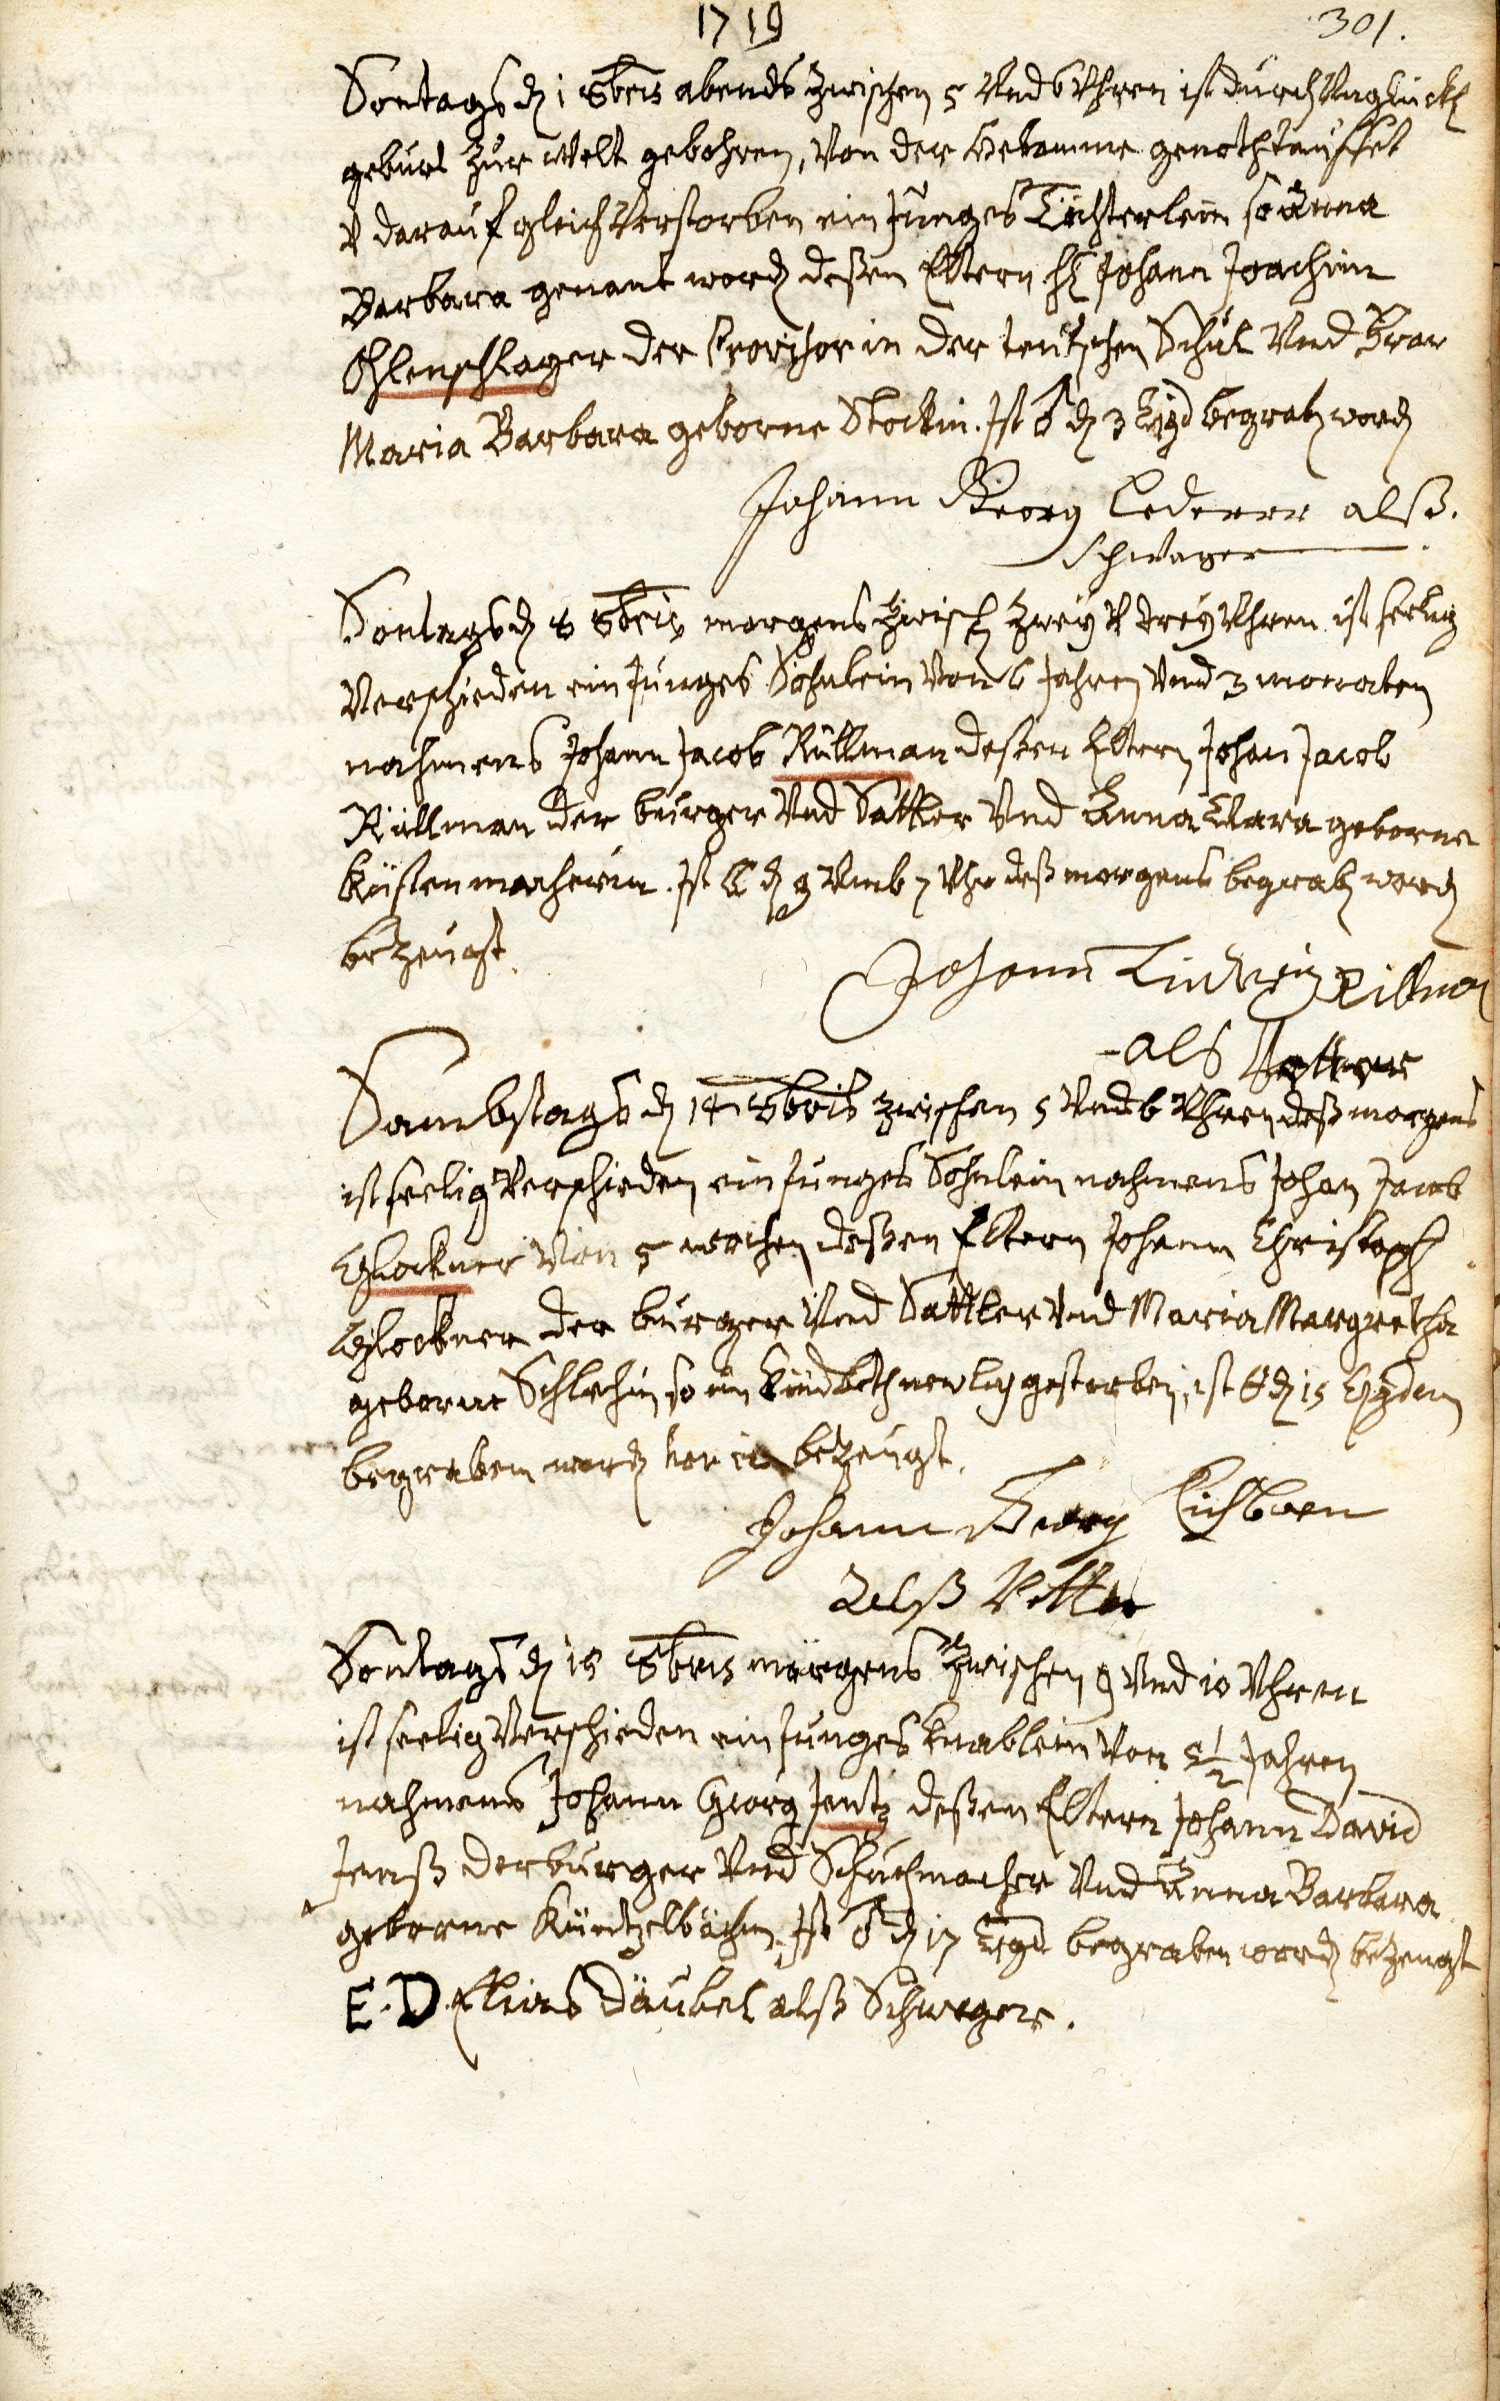 1719
301.
Sontags dn 1 8bris abends zwischen 5 Vnd 6 Vhren ist durch Vnglückl
geburt zur Welt gebohren, Von der Hebamme genothtauffet
v darauf gleich Verstorben ein Junges Töchterlein so Anna
Barbara genant word deßen Eltern H Johann Joachim
Ohlenschlager der Provisor in der teutschen Schul Vnd Frau
Maria Barbara geborne Stockin. Ist ♂ dn 3 begrab word
Johann Georg Lederer alß.
Schwager
Sontags dn 8 8bris morgens zwisch zwey v drey Vhren ist seelig
Verschieden ein Junges Söhnlein Von 6 Jahren Vnd 3 monaten
nahmens Johann Jacob Rüllman deßen Eltern Johan Jacob
Rüllman der burger Vnd Sattler Vnd Anna Clara geborne
Küstenmacherin. Ist ☾ dn 9 Vmb 7 Vhr deß morgens begrab word
bezeugt.
Johann Ludwig Rillman
als Vetter
Sambstags dn 14 8bris zwischen 5 Vnd 6 Vhren deß morgens
ist seelig Verschieden ein junges Söhnlein nahmens Johan Jacob
Glockner Von 5 wochen deßen Eltern Johann Christoph
Glockner der burger Vnd Sattler Vnd Maria Margretha
geborne so im Kindbeth newlig gestorben, ist dn 15
begraben word bezeugt.
Johann Georg
Alß Vetter
Sontags dn 15 8bris morgens zwischen 9 Vnd 10 Vhren
ist seelig Verschieden ein junges Knablein Von 5 1/2 Jahren
nahmens Johann Georg Jentz deßen Eltern Johann David
Jentz der burger Vnd Schuchmacher Vnd Anna Barbara
geborne Ist ♂ dn 17 begraben word bezeugt
E. D. Elias Däubel alß Schwager.